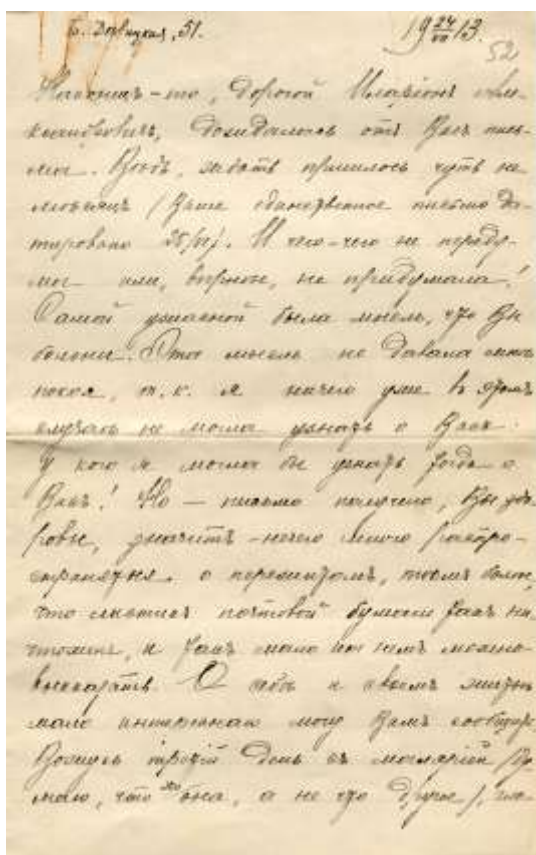 19 24/VII 13.
52
Наконецъ-то, дорогой Иларіонъ Але-
ксандровичъ, дождалась отъ Васъ пись-
ма. Вѣдь, ждать пришлось чуть не
мѣсяцъ (Ваше единственное письмо да-
тировано 25/VI). И чего-чего не переду-
мала или, вѣрнѣе, не придумала!
Самой ужасной была мысль, что Вы
больны. Эта мысль не давала мнѣ
покоя, т. к. я ничего уже въ этомъ
случаѣ не могла узнать о Васъ.
У кого я могла бы узнать тогда о
Васъ! Но — письмо получено, Вы здо-
ровы, значитъ – нечего много распро-
страняться о пережитомъ, тѣмъ болѣе,
что листикъ почтовой бумаги такъ ни-
чтоженъ, и такъ мало на немъ можно
высказать. О себѣ и своей жизни
мало интереснаго могу Вамъ сообщить.
Вожусь третій день съ маляріей (ду-
маю, что это она, а не что другое),